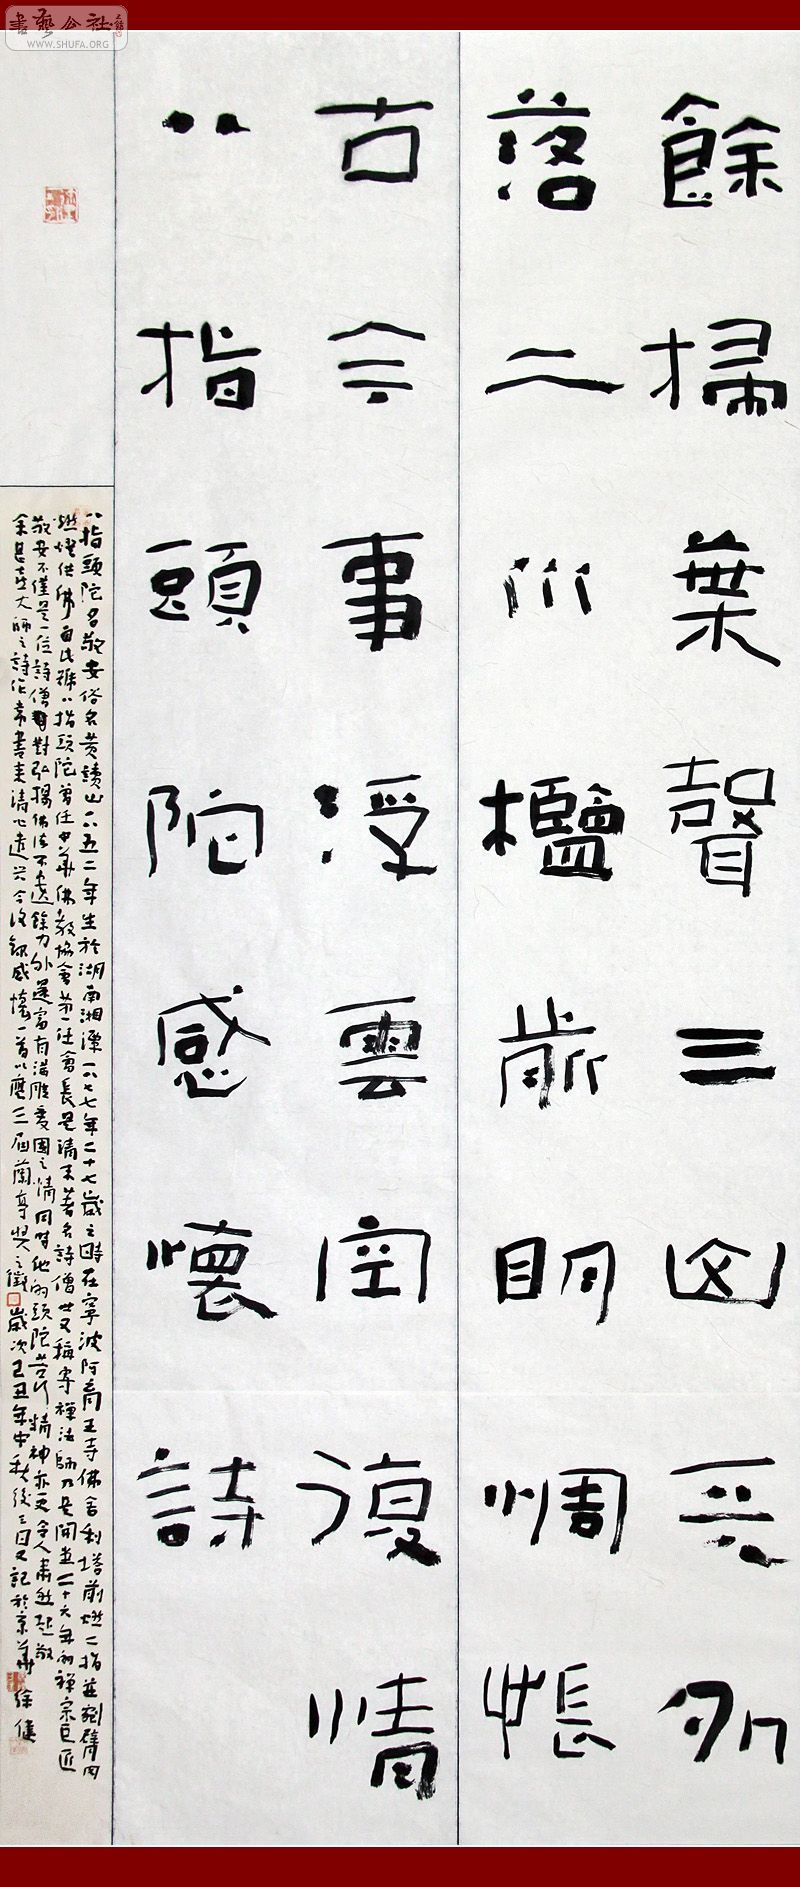 書藝公社
WWW.SHUFA.ORG
餘掃葉聲三
落二川檻前明惆悵
古今事浮雲空復情
八指頭陀感懷詩
八指頭陀名敬安俗名黃讀山一八五二年生於湖南湘潭一八七七年二十七歲之時在寧波阿育王寺佛舍利塔前燃二指並剜臂肉
燃燈供佛自此號八指頭陀曾任中華佛教協會第一任會長是清末著名詩僧世又稱寄禪法師乃是開並二十六年的禪宗巨匠
敬安不僅是一位詩僧對弘揚佛法不遺餘力外還富有滿腔愛國之情同時他的頭陀苦行精神亦更令人肅然起敬
余甚喜大師之詩作常書來清心遣興今後錄感懷一首以應三屆蘭亭獎之徵歲次己丑年中秋後三日又記於京華徐健